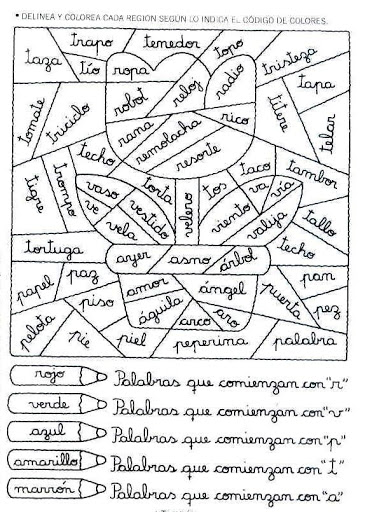 • DELINEA Y COLOREA CADA REGIÓN SEGÚN LO INDICA EL CÓDIGO DE COLORES.
trapo tenedor topo
taza tío ropa radio tristeza
tapa
tomate triciclo robot reloj titere telar
rana rico
remolacha
techo resorte taco tambor
tigre trompo vaso torta tos va vía
ve vestido velero viento valija tallo
vela
tortuga ayer asno árbol techo
papel paz amor ángel puerta pan
piso águila pez
pelota pie arco aro
piel peperina palabra
rojo Palabras que comienzan con "r"
verde Palabras que comienzan con "v"
azul Palabras que comienzan con "p"
amarillo Palabras que comienzan con "t"
marrón Palabras que comienzan con "a"